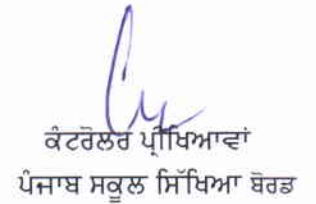 ਕੰਟਰੋਲਰ ਪ੍ਰੀਖਿਆਵਾਂ
ਪੰਜਾਬ ਸਕੂਲ ਸਿੱਖਿਆ ਬੋਰਡ